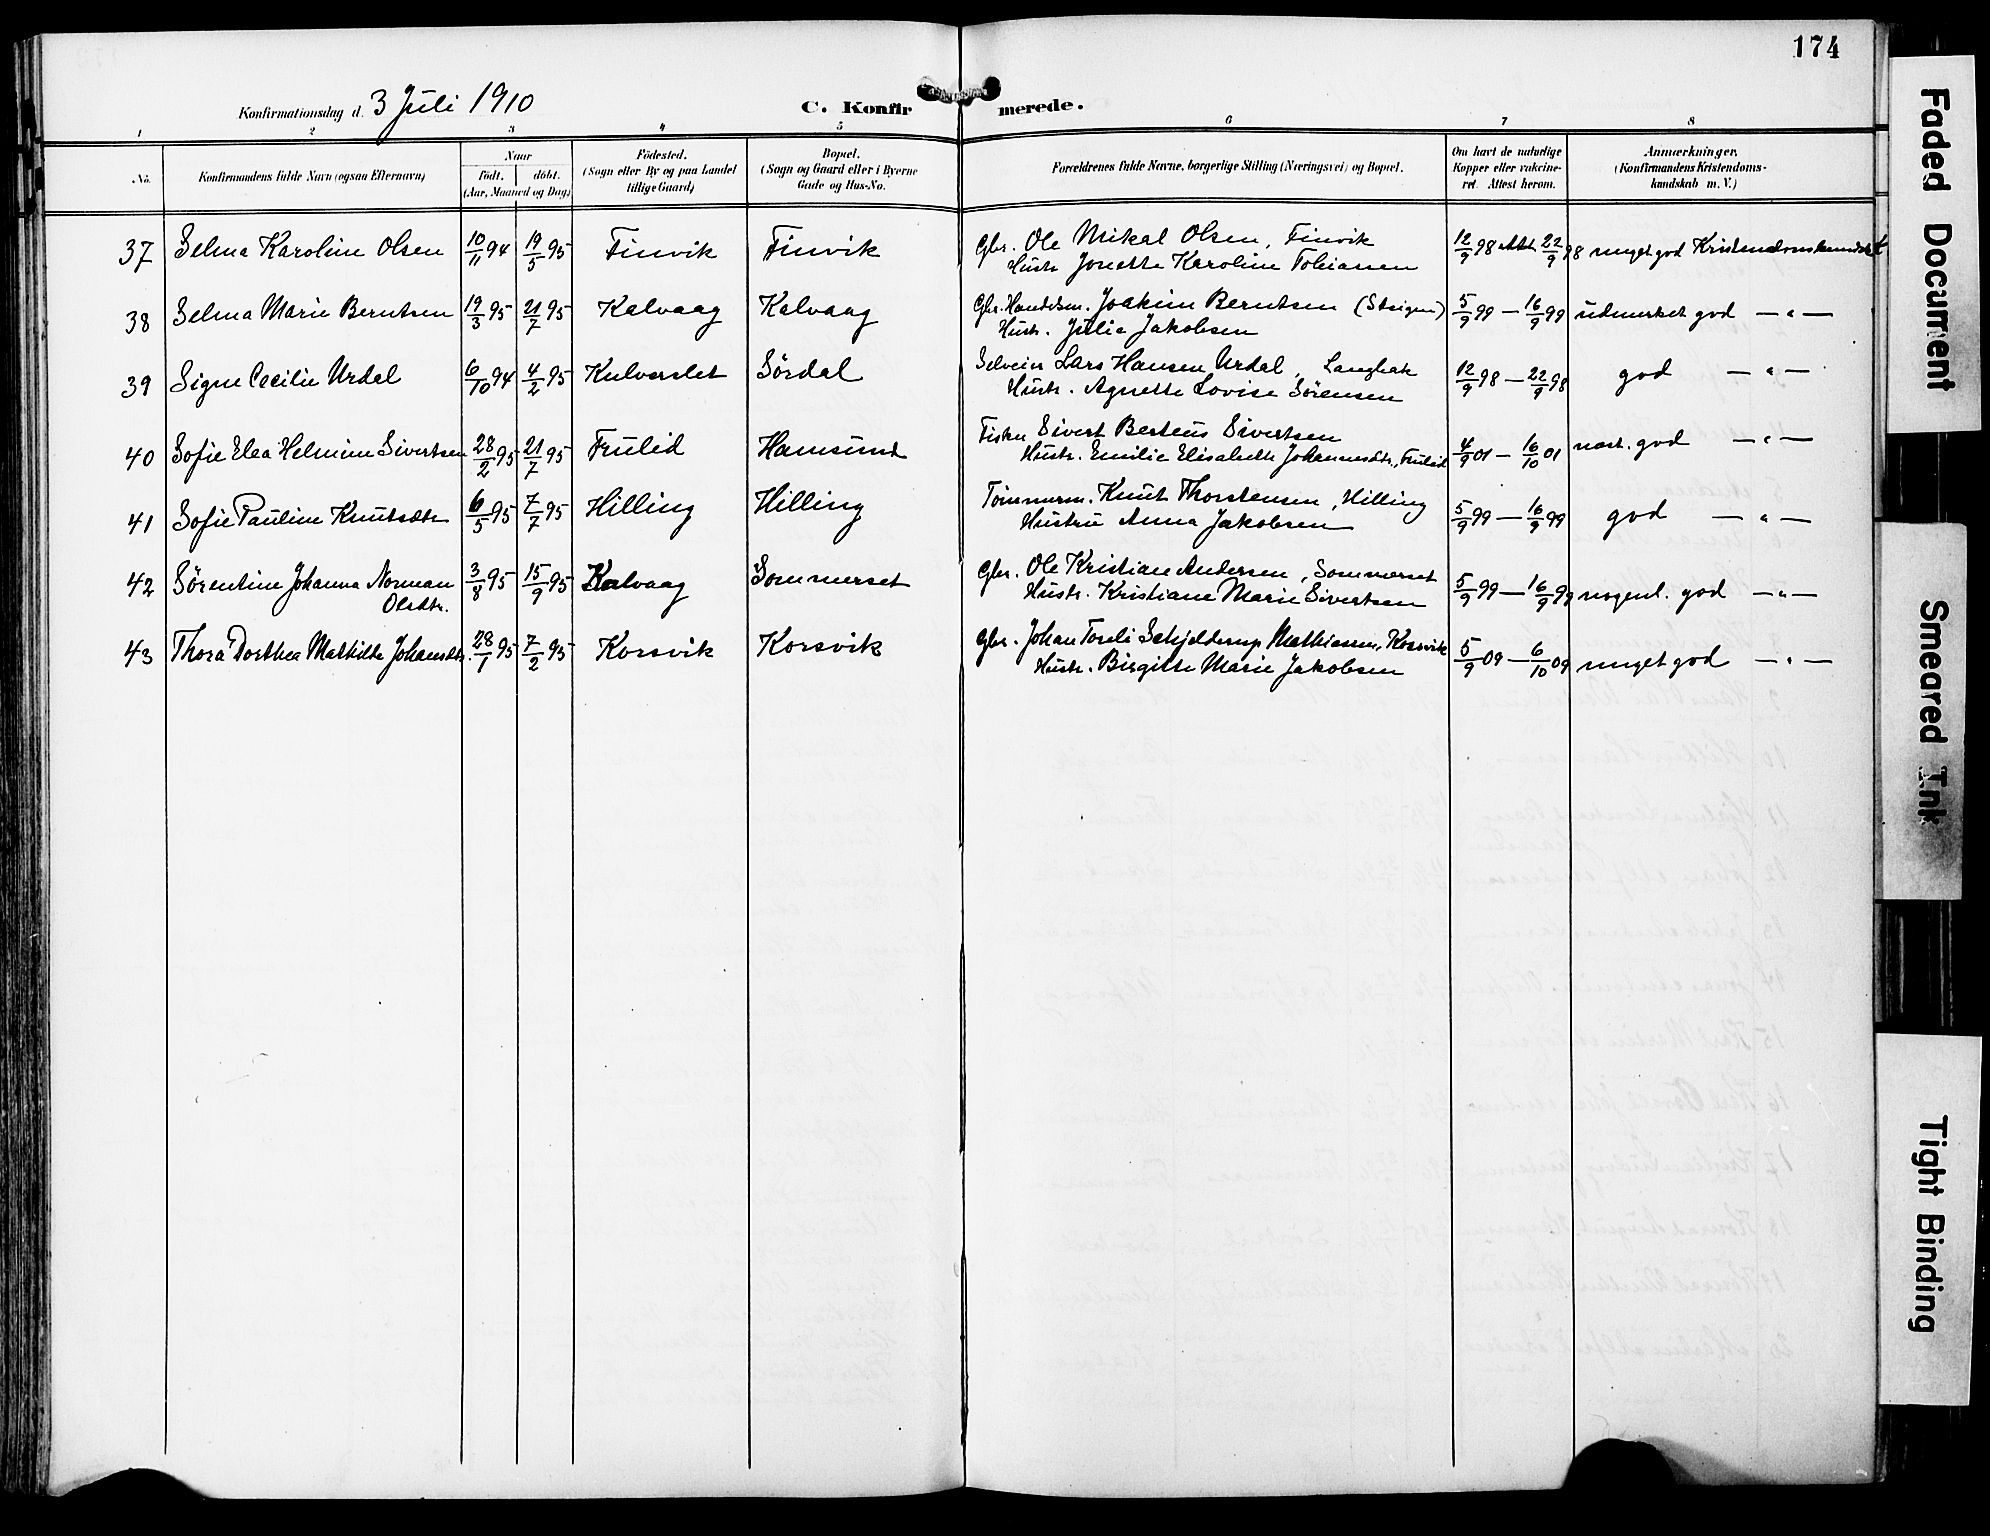 174
Konfirmationsdag d. 3 Juli 1910
C. Konfirmerede.
1 2 3 4 5 6 7 8
No. Konfirmandens fulde Navn (ogsaa Efternavn) Naar födt. döbt. (Aar, Maaned og Dag) Födested. (Sogn eller By og paa Landet tillige Gaard) Bopæl. (Sogn og Gaard eller i Byerne Gade og Hus-No. Forældrenes fulde Navne, borgerlige Stilling (Næringsvei) og Bopæl. Om havt de naturlige Kopper eller vakcineret. Attest herom. Anmærkninger. (Konfirmandens Kristendomskundskab m. V.)
37 Selma Karoline Olsen 10/11 94 19/5 95 Finvik Finvik Gbr. Ole Mikal Olsen, Finvik 12/9 98 Att. 22/9 98 meget god Kristendomskundskab
Hustr. Jonette Karoline Tobiassen
38 Selma Marie Berntsen 19/3 95 21/7 95 Kalvaag Kalvaag Gbr. Handelsm. Joakim Berntsen (Steigen) 5/9 99 — 16/9 99 udmerket god — " —
Hustr. Julie Jakobsen
39 Signe Cecilie Urdal 6/10 94 4/2 95 Sördal Selveier Lars Hansen Urdal, Langbak 12/9 98 — 22/9 98 god — " —
Hustr. Agnette Lovise Sörensen
40 Sofie Elea Helmine Sivertsen 28/2 95 21/7 95 Frulid Hamsund Fisker Sivert Berteus Sivertsen 4/9 01 — 16/10 01 god — " —
Hustr. Emilie Elisabeth Johannesdtr., Frulid
41 Sofie Pauline Knutsdtr 6/5 95 7/7 95 Hilling Hilling Tömmerm. Knut Thorstensen, Hilling 5/9 99 — 16/9 99 god — " —
Hustru Anna Jakobsen
42 Sörentine Johanna Norman 3/8 95 15/9 95 Kalvaag Sommerset Gbr. Ole Kristian Andersen, Sommerset 5/9 99 — 16/9 99 nogenl. god — " —
Olsdtr. Hustr. Kristiane Marie Sivertsen
43 Thora Dorthea Mathilde Johansdtr. 28/1 95 7/2 95 Korsvik Korsvik Gbr. Johan Schjelderup Mathiassen, Korsvik 5/9 09 — 6/10 09 meget god — " —
Hustr. Birgitte Marie Jakobsen
Faded Document
Smeared Ink
Tight Binding